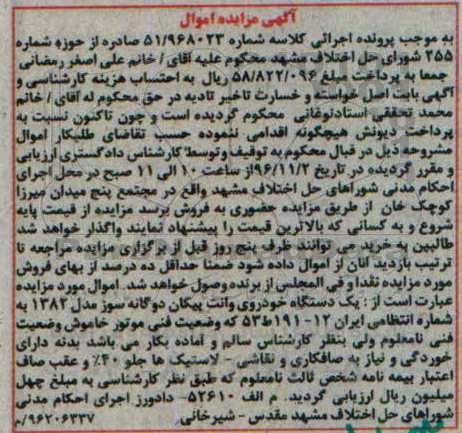 آگهی مزایده اموال
به موجب پرونده اجرائی کلاسه شماره ۵۱/۹۶۸۰۲۳ صادره از حوزه شماره
۲۵۵ شورای حل اختلاف مشهد محکوم علیه آقای / خانم علی اصغر رمضانی
جمعا به پرداخت مبلغ ۵۸/۸۲۲/۰۹۶ ریال به احتساب هزینه کارشناسی و
آگهی بابت اصل خواسته و خسارت تاخیر تادیه در حق محکوم له آقای / خانم
محمد تحققی استادنوغانی محکوم گردیده است و چون تاکنون نسبت به
پرداخت دیونش هیچگونه اقدامی ننموده حسب تقاضای طلبکار اموال
مشروحه ذیل در قبال محکوم به توقیف و توسط کارشناس دادگستری ارزیابی
و مقرر گردیده در تاریخ ۹۶/۱۱/۲ از ساعت ۱۰ الی ۱۱ صبح در محل اجرای
احکام مدنی شوراهای حل اختلاف مشهد واقع در مجتمع پنج میدان میرزا
کوچک خان از طریق مزایده حضوری به فروش برسد مزایده از قیمت پایه
شروع و به کسانی که بالاترین قیمت را پیشنهاد نمایند واگذار خواهد شد
طالبین به خرید می توانند ظرف پنج روز قبل از برگزاری مزایده مراجعه تا
ترتیب بازدید آنان از اموال داده شود ضمنا حداقل ده درصد از بهای فروش
مورد مزایده نقدا و فی المجلس از برنده وصول خواهد شد. اموال مورد مزایده
عبارت است از : یک دستگاه خودروی وانت پیکان دوگانه سوز مدل ۱۳۸۲ به
شماره انتظامی ایران ۱۲-۱۹۱ط۵۳ که وضعیت فنی موتور خاموش وضعیت
فنی نامعلوم ولی بنظر کارشناس سالم و آماده بکار می باشد بدنه دارای
خوردگی و نیاز به صافکاری و نقاشی - لاستیک ها جلو ۴۰٪ و عقب صاف
اعتبار بیمه نامه شخص ثالث نامعلوم که طبق نظر کارشناسی به مبلغ چهل
میلیون ریال ارزیابی گردید. م الف ۵۲۶۱۰- دادورز اجرای احکام مدنی
شوراهای حل اختلاف مشهد مقدس - شیرخانی
۹۶۲۰۶۳۳۷/م